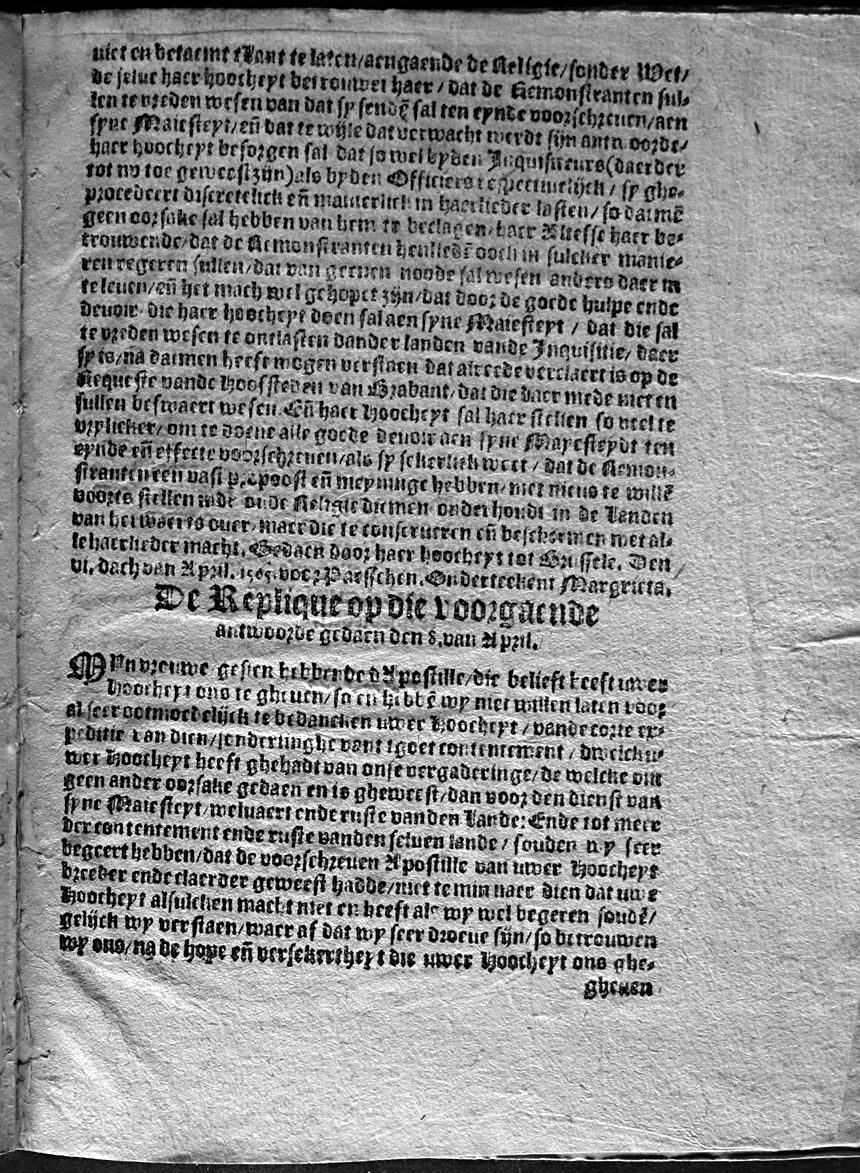 niet en betaemt tLant te laten/aengaende de Religie/sonder Wet/
de selve haer hoocheyt betrouwet haer/dat de Remonstranten sul-
len te vreden wesen van dat sy sendē sal ten eynde voorschreuen/aen
syne Maiesteyt/eñ dat te wijle dat verwacht werdt sijn antwoorde/
haer hoocheyt besorgen sal dat so wel by den Inquisiteurs (daer der
tot nu toe geweest zijn) als by den Officiers respectiuelijck/sy ghe-
procedeert discretelick eñ manierlick in haerlieder lasten/so datmē
geen oorsake sal hebben van hem te beclagen/haer Altesse haer be-
trouwende/dat de Remonstranten henliedē oock in sulcker manie-
ren regeren sullen/dat van geenen noode sal wesen anders daer in
te leuen/eñ het mach wel gehopet zijn/dat door de goede hulpe ende
deuoir die haer hoocheyt doen sal aen syne Maiesteyt/dat die sal
te vreden wesen te ontlasten dander landen vande Inquisitie/daer
sy is/na datmen heeft mogen verstaen dat alreede verclaert is op de
Requeste vande hooftsteden van Brabant/dat die daer mede niet en
sullen beswaert wesen. Eñ haer hoocheyt sal haer stellen so veel te
vrylicker/om te doene alle goede deuoir aen syne Mayesteydt ten
eynde eñ effecte voorschreuen/als sy sekerlick weet/dat de Remon-
stranten een vast propoost eñ meyninge hebben/niet nieus te willē
voorts stellen inde oude Religie diemen onderhoudt in de Landen
van herwaerts ouer/maer die te conserueren eñ beschermen met al-
le haerlieder macht. Gedaen door haer hoocheyt tot Brussele. Den
vi. dach van April. 1565. voor Paesschen. Onderteekent Margrieta.
De Replique op die voorgaende
antwoorde gedaen den 8. van April.
MYn vrouwe gesien hebbende dApostille/die belieft heeft uwer
Hoocheyt ons te gheuen/so en hebbē wy niet willen laten voor
al seer ootmoedelijck te bedancken uwer Hoocheyt/vande corte ex-
peditie van dien/sonderlinghe vant tgoet contentement/dwelck u-
wer Hoocheyt heeft ghehadt van onse vergaderinge/de welcke om
geen ander oorsake gedaen en is gheweest/dan voor den dienst van
syne Maiesteyt/weluaert ende ruste vanden Lande: Ende tot meer
der contentement ende ruste vanden seluen lande/souden wy seer
begeert hebben/dat de voorschreuen Apostille van uwer Hoocheyt
breeder ende claerder geweest hadde/niet te min naer dien dat uwe
Hoocheyt alsulcken macht niet en heeft als wy wel begeren soudē/
gelijck wy verstaen/waer af dat wy seer droeue sijn/so betrouwen
wy ons/na de hope eñ versekertheyt die uwer Hoocheyt ons ghe-
gheuen